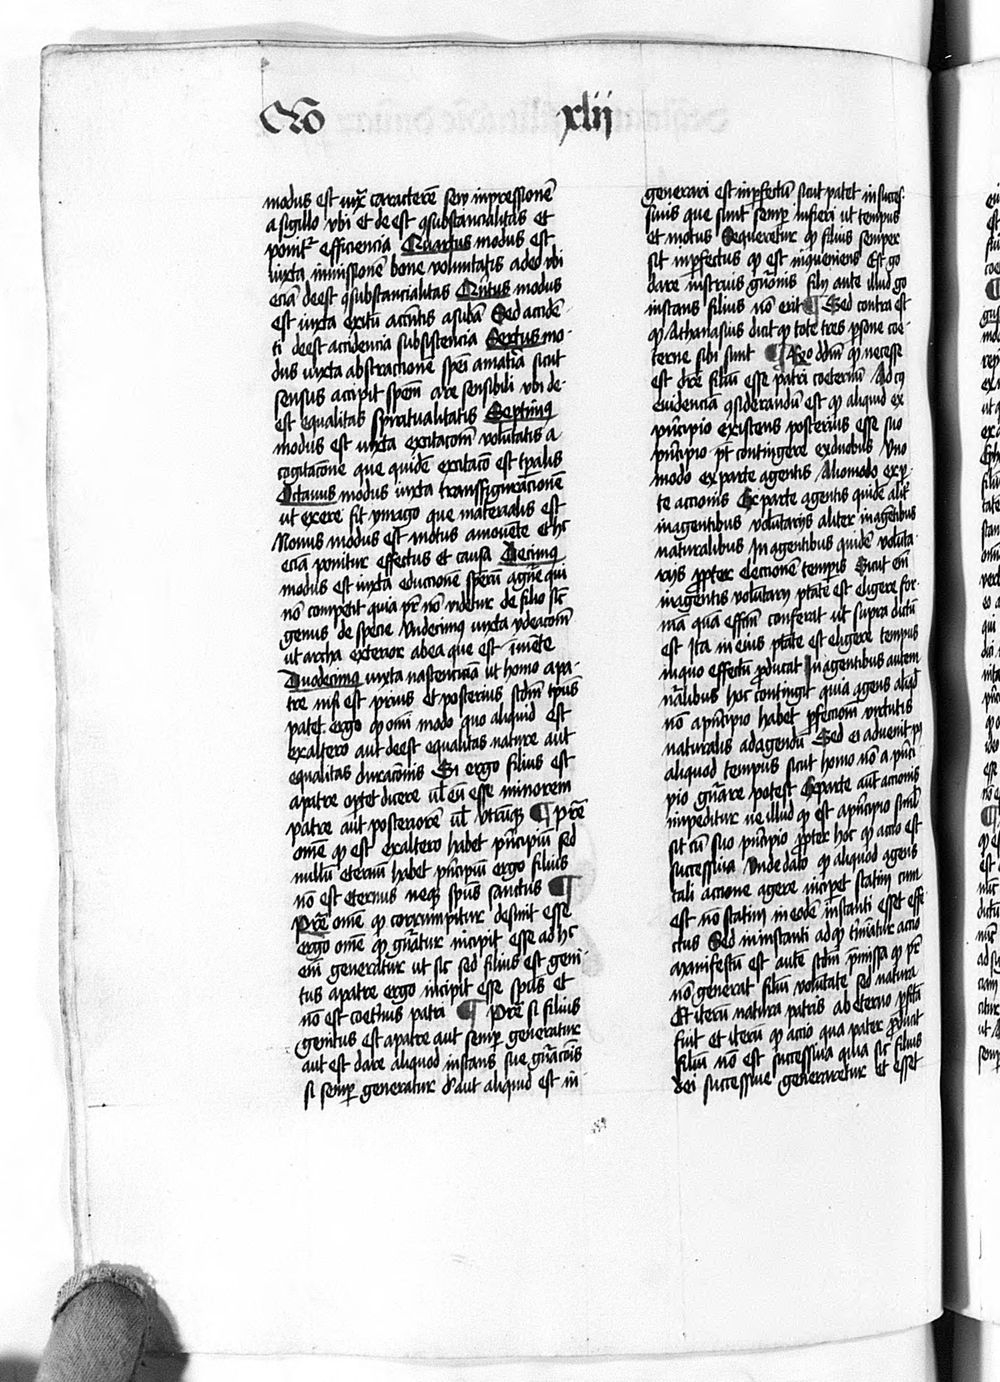 Qō xlij
modus est iuxͣ caracterē seu inpressionē
a sigillo vbi et deest ꝯsubstancialitas et
ponit᷑ efficiencia Quartus modus est
iuxta inmissionē bone volūtatis a deo vbi
eciā deest ꝯsubstancialitas Qūitus modus
est iuxta exitū accn̄tis a subā Sed accidē
ti deest accidencia subsistencia Sextus mo-
dus iuxta abstractionē spēi a matīa sicut
sensus accipit spēm a re sensibili vbi de-
est equalitas spiritualitatis Septimus
modus est iuxta excitacōm volūtatis a
cogitacōne que quidē excitacō est tp̄alis
Octauus modus iuxta transfiguracionē
ut ex ere fit ymago que materialis est
Nonus modus est motus a mouēte et hͨ
eciā ponitur effectus et causa Decimus
modus est iuxta eductionē spērū a gn̄e qui
nō competit quia pr̄ nō videtur de filio sic̄
genus de specie Vndecimus iuxta ydeacōm
ut archa exterior ab ea que est ī mēte
Duodecimus iuxta nascenciam ut homo a pa-
tre nisi est prius et posterius scdm̄ tp̄us
patet ergo ꝙ omī modo quo aliquid est
ex altero aut deest equalitas nature aut
equalitas duracōnis Si ergo filius est
a patre oꝑtet dicere ul̄ eū esse minorem
patre aut posteriorē ul̄ vtrūqꝫ ¶ Pre͞
om̄e ꝙ est ex altero habet pn̄cipiū sed
nullū eternū habet pn̄cipiū ergo filius
nō est eternus neqꝫ sp̄us sanctus ¶
Pre͞ om̄e ꝙ corrumpitur desinit esse
ergo om̄e ꝙ gn̄atur incipit esse ad hͨ
em̄ generatur ut sic sed filius est geni
tus a patre ergo incipit esse sp̄us et
nō est coet̄nus patri ¶ Pre͞ si filius
genitus est a patre aut semꝑ generatur
aut est dare aliquod instans sue gn̄acōis
si semꝑ generatur d' aut aliquid est in
generari est inꝑfectū sicut patet in succes-
siuis que sunt semꝑ in fieri ut tempus
et motus Sequeretur ꝙ filius semper
sit inꝑfectus ꝙ est inꝯueniens Est gͦ
dare instans gn̄onis filij ante illud gͦ
instans filius nō erit ¶ Sed contra est
ꝙ Athanasius dicit ꝙ tote tres ꝑsone coe-
terne sibi sunt ¶ Rͦ dd̄m ꝙ necesse
est dic̄re filiū esse patri coeternū Ad cꝰ
euidenciā ꝯsiderandū est ꝙ aliquid ex
pn̄cipio existens posterius esse suo
pn̄cipio pt̄ contingere ex duobus Vno
modo ex parte agentis Aliomodo ex ꝑ-
te accionis Ex parte agentis quidē alit̄
in agentibus volūtarijs aliter in agētibus
naturalibus In agentibus quidē volūta-
rijs ꝓpter electionē temꝑis Sicut em̄
in agentis volūtarij ptāte est eligere for-
mā quā effc̄ui conferat ut supra dictū
est Ita in eius ptāte est eligere tempus
in quo effectū ꝓducat In agentibus autem
nāˡibus hoc contingit quia agens aliqd̄
nō a pn̄cipio habet ꝑfectionē virtutis
naturalis ad agendū Sed ei aduenit pꝰ
aliquod tempus sicut homo nō a pn̄ci
pio gn̄are potest Ex parte aut̄ accionis
impeditur ne illud ꝙ est a pn̄cipio simul
sit cū suo pn̄cipio ꝓpter hoc ꝙ actio est
successiua Vnde dato ꝙ aliquod agens
tali accione agere inciꝑet statim cum
est nō statim in eodē instanti esset effe
ctus Sed in instanti ad qd̄ t̄minatur actio
Manifestū est autē scdm̄ p̄missa ꝙ pr̄
nō generat filiū volūtate sed natura
Et iterū natura patris ab eterno ꝑfcā
fuit et iterū ꝙ actio qua pater ꝓducit
filiū nō est successiua quia sic filius
dei successiue generaretur et esset